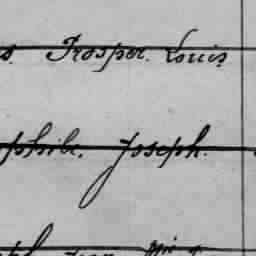 s. Prosper. Louis
phile. Joseph.